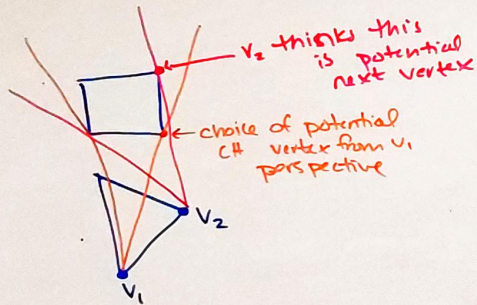 V₂ thinks this
is potential
next vertex
choice of potential
CH vertex from V₁
perspective
V₂
V₁